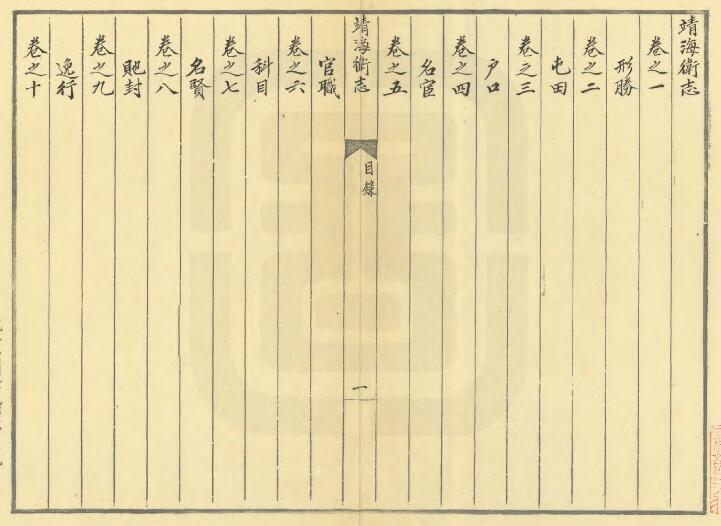 靖海衛志
卷之一
形勝
卷之二
屯田
卷之三
户口
卷之四
名宦
卷之五
靖海衛志
目錄
一
官職
卷之六
科目
卷之七
名賢
卷之八
貤封
卷之九
逸行
卷之十